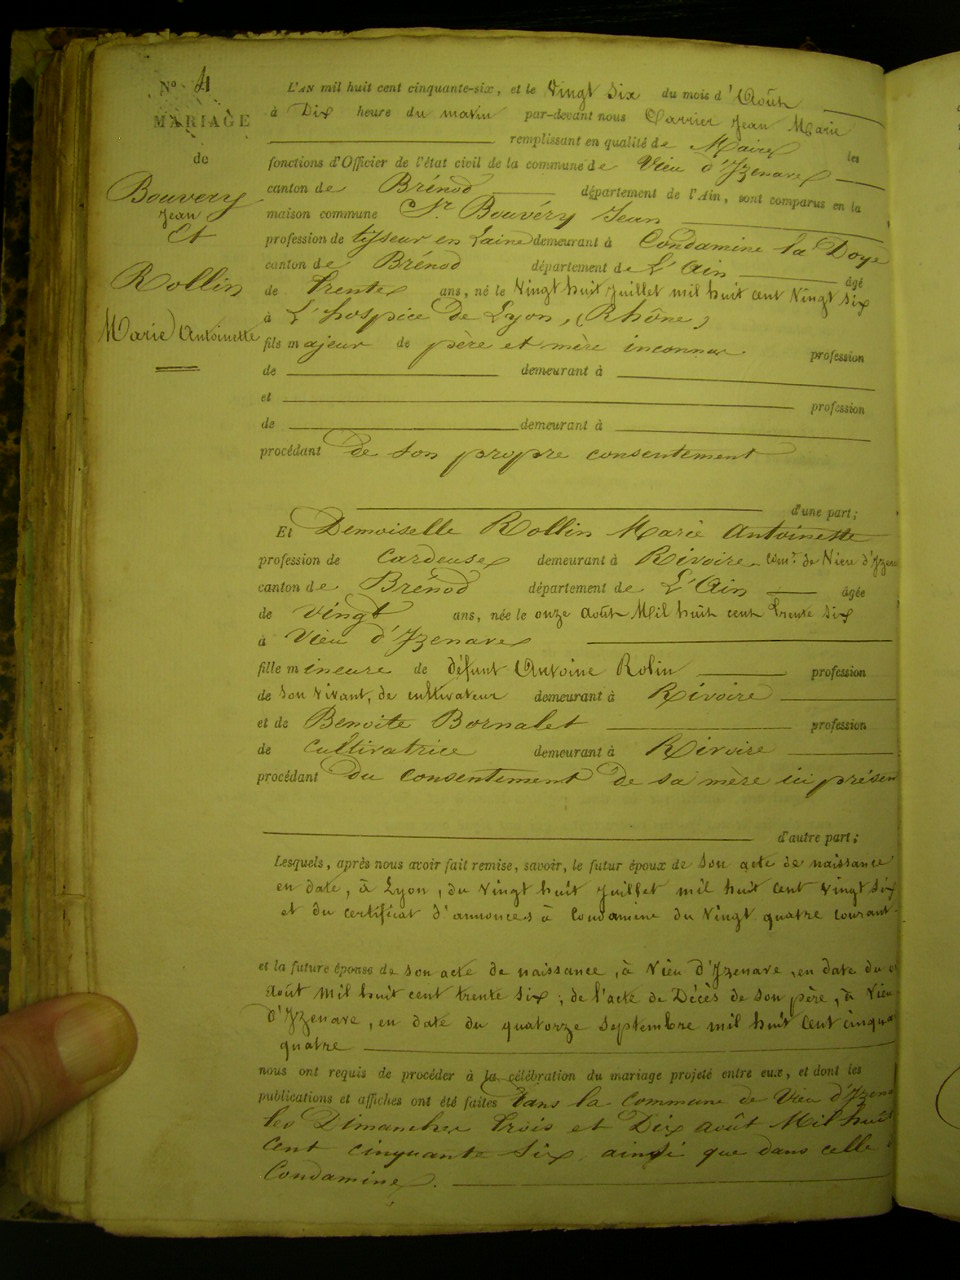 N° 4
MARIAGE
de
Bouvery
Jean
Et
Rollin
Marie Antoinette
L'AN mil huit cent cinquante-six, et le Vingt Six du mois d'Août
à Dix heure du matin par-devant nous Carrier Jean Marie
remplissant en qualité de Maire les
fonctions d'Officier de l'état civil de la commune de Vieu d'Izenave
canton de Brénod département de l'Ain, sont comparus en la
maison commune Sr Bouvéry Jean
profession de tisseur en Laine demeurant à Condamine la Doye
canton de Brénod département de L'Ain âgé
de trente ans, né le Vingt huit Juillet mil huit cent Vingt six
à L'hospice de Lyon, (Rhône)
fils majeur de père et mère inconnus profession
de demeurant à
et profession
de demeurant à
procédant de son propre consentement
d'une part;
Et Demoiselle Rollin Marie Antoinette
profession de Cardeuse demeurant à Rivoire Comne de Vieu d'Izen
canton de Brénod département de L'Ain âgée
de vingt ans, née le onze Août Mil huit cent trente six
à Vieu d'Izenave
fille mineure de défunt Antoine Rolin profession
de son vivant, de cultivateur demeurant à Rivoire
et de Benoite Bornalet profession
de Cultivatrice demeurant à Rivoire
procédant du consentement de sa mère ici présen
d'autre part;
Lesquels, après nous avoir fait remise, savoir, le futur époux de son acte de naissance
en date, à Lyon, du vingt huit Juillet mil huit cent vingt six
et du certificat d'annonces à Condamine du Vingt quatre courant
et la future épouse de son acte de naissance, à Vieu d'Izenave, en date du
Août mil huit cent trente six; de l'acte de Décès de son père, à Vieu
d'Izenave, en date du quatorze Septembre mil huit cent cinqua
quatre
nous ont requis de procéder à la célébration du mariage projeté entre eux, et dont les
publications et affiches ont été faites dans la Commune de Vieu d'Izena
les Dimanches trois et Dix août Mil huit
Cent cinquante Six, ainsi que dans celle
Condamine.